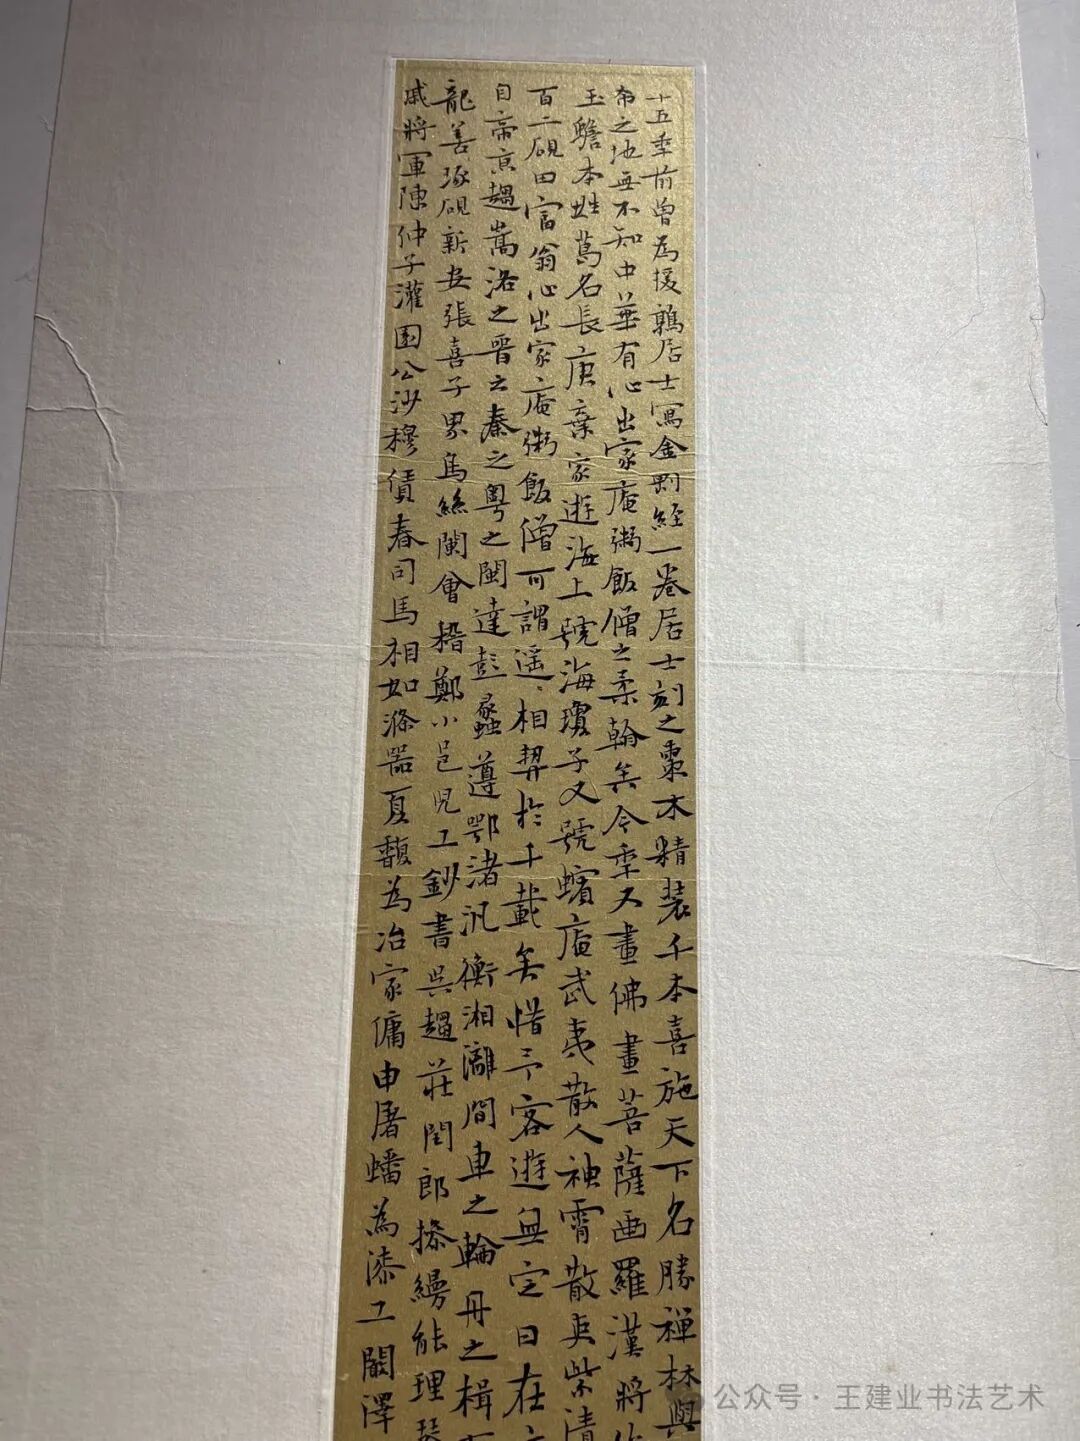 十五年前曾為援鶉居士寫金剛經一卷居士刻之棗木精裝千本喜施天下名勝禪林與
布之地無不知中華有心出家庵粥飯僧之柔翰矣今年又畫佛畫菩薩畫羅漢將
玉蟾本姓葛名長庚棄家遊海上號海瓊子又號蠙庵武夷散人神霄散吏紫清
百二硯田富翁心出家庵粥飯僧可謂遥遥相契於千載矣惜予客遊無定日在
自帝京趨嵩洛之晉之秦之粵之閩達彭蠡遵鄂渚汎衡湘灕間車之輪舟之楫
龍善琢硯新安張喜子界烏絲闌會稽鄭小邑兒工鈔書吳趨莊閏郎操縵能理琴
戚將軍陳仲子灌園公沙穆賃舂司馬相如滌器夏馥為冶家傭申屠蟠為漆工闞澤
公众号·王建业书法艺术